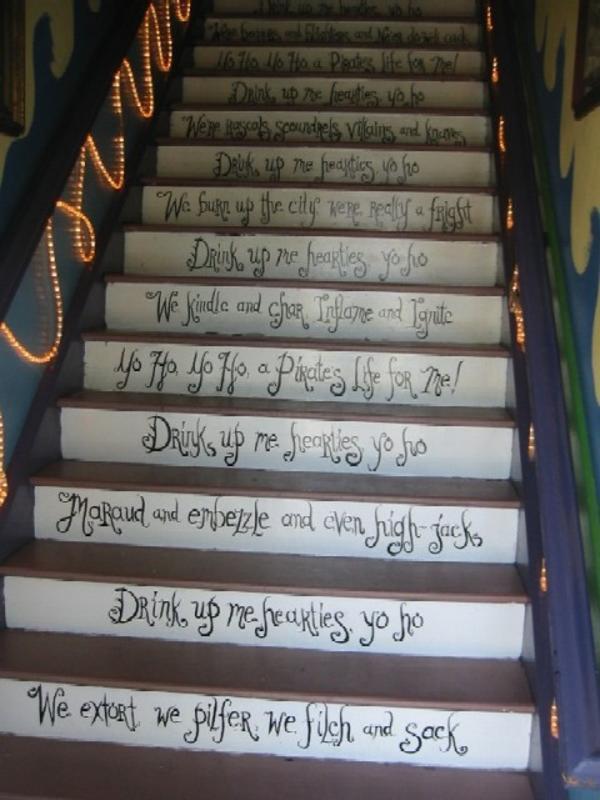 Drink up me hearties yo ho
We're beggars and Blighters and Ne'er do well cads
Yo Ho, Yo Ho a Pirates Life for Me!
Drink, up me hearties, yo ho
We're Rascals, scoundrels, Villains, and knaves
Drink, up me hearties, yo ho
We burn up the city, we're really a fright
Drink up me hearties, yo ho
We kindle and char, Inflame and Ignite
Yo Ho, Yo Ho, a Pirates Life for Me!
Drink, up me hearties, yo ho
Maraud and embezzle and even high-jack
Drink up me hearties, yo ho
We extort, we pilfer, we filch and sack